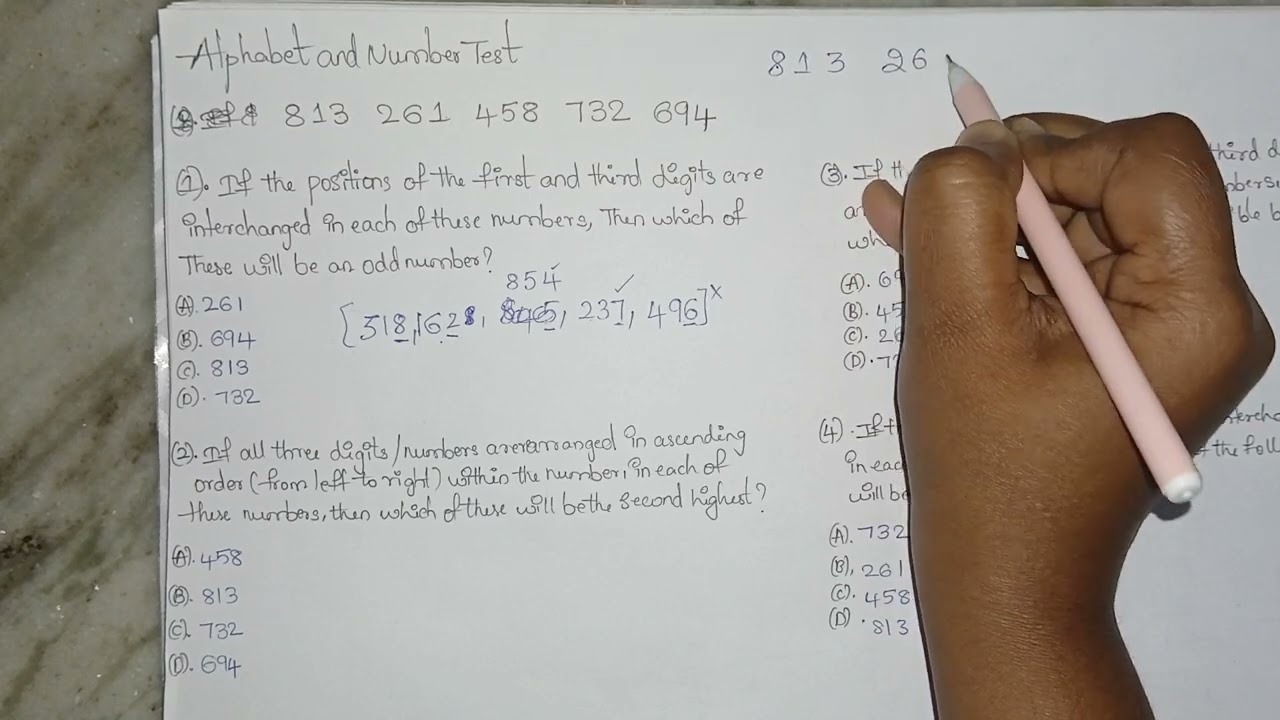 Alphabet and Number Test
813 26
813 261 458 732 694
(1). If the positions of the first and third digits are
interchanged in each of these numbers, Then which of
These will be an odd number?
854 ✓
[318, 1628, 845, 237, 496] x
(A). 261
(B). 694
(C). 813
(D). 732
(2). If all three digits/numbers are rearranged in ascending
order (from left to right) within the number, in each of
these numbers, then which of these will be the second highest?
(A). 458
(B). 813
(C). 732
(D). 694
(3). If
third
(A). 69
(B). 45
(C). 26
(D). 7
(4). If
in each
will be
the
(A). 732
(B). 261
(C). 458
(D). 813